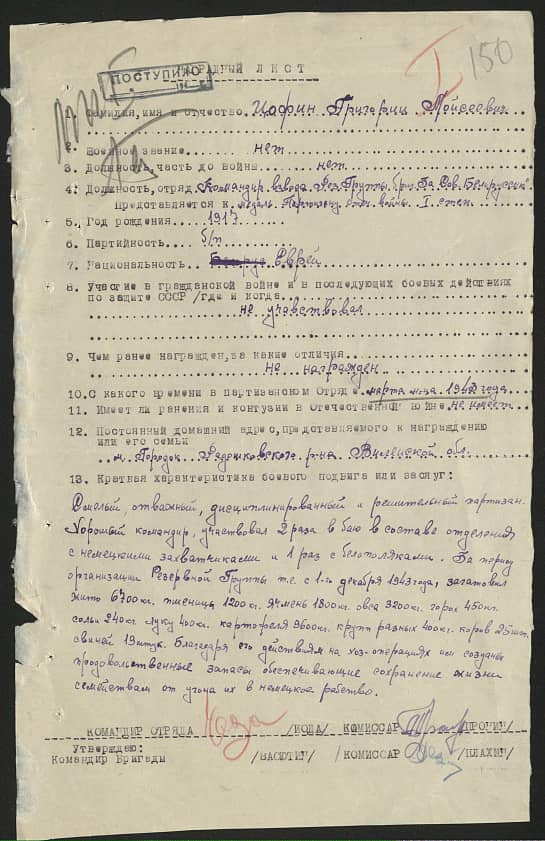 I 150
ПОСТУПИЛО
НАГРАДНЫЙ ЛИСТ
1. Фамилия, имя и отчество Цофин Григорий Мойсеевич
2. Военное звание .... нет
3. Должность, часть до войны ..... нет
4. Должность, отряд. Командир взвода Рез. Группы бриг. "За Сов. Белоруссию"
Представляется к медаль Партизану отеч. войны I степ.
5. Год рождения.... 1917
6. Партийность.... б/п
7. Национальность.. Еврей
8. Участие в гражданской войне и в последующих боевых действиях
по защите СССР /где и когда
не участвовал
9. Чем ранее награжден, за какие отличия
не награжден
10. С какого времени в партизанском Отряде марта м-ца 1943 года
11. Имеет ли ранения и контузии в Отечественной войне не имеет
12. Постоянный домашний адрес, представляемого к награждению
или его семьи
м. Городок Радошковского р-на Вилейской обл.
13. Краткая характеристика боевого подвига или заслуг:
Смелый, отважный, дисциплинированный и решительный партизан.
Хороший командир, участвовал 2 раза в бою в составе отделения
с немецкими захватчиками и 1 раз с белополяками. За период
организации Резервной Группы т.е. с 1-го декабря 1943 года, заготовил
жито 6700 кг. пшеницы 1200 кг. ячмень 1800 кг. овса 3200 кг. горох 450 кг.
соли 240 кг. луку 400 кг. картофеля 9600 кг. крупп разных 400 кг. коров 25 шт.
свиней 19 штук. Благодаря его действиям на хоз-операциях им созданы
продовольственные запасы обеспечивающие сохранение жизни
семействам от угона их в немецкое рабство.
КОМАНДИР ОТРЯДА /КОЗА/ КОМИССАР /ПРОНИН/
Утверждаю:
Командир Бригады /ВАСЮТИН/ /КОМИССАР /ПЛАХИН/